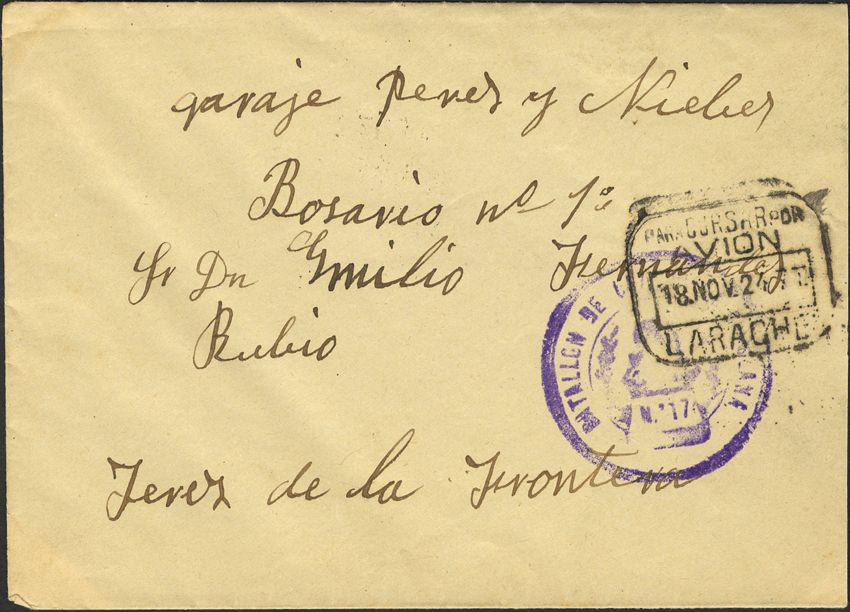 garaje Perez y Niebez
Rosario nº 1º
PARA CURSAR POR
AVION
18.NOV.24
LARACHE
Sr Dn Emilio Fernandez
Rubio
BATALLON DE
N.º 17
Jerez de la Frontera